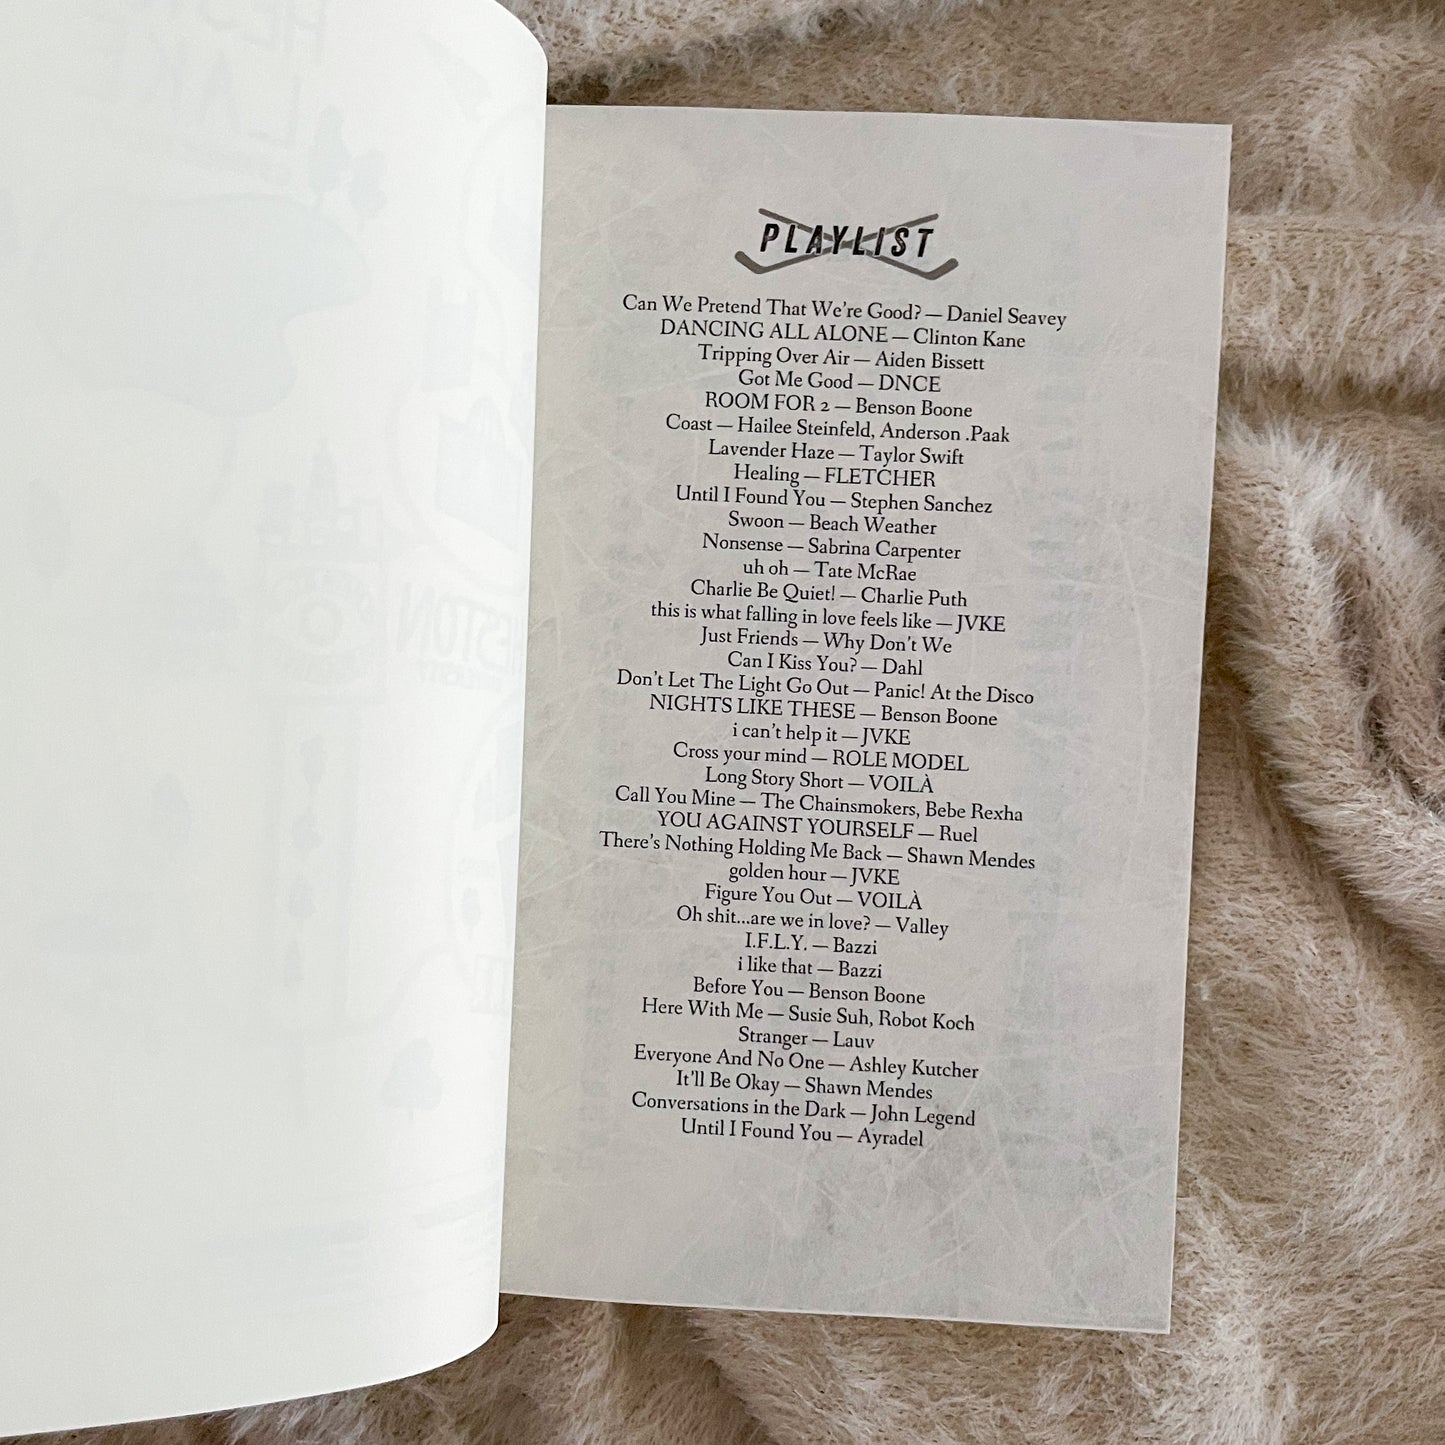 PLAYLIST
Can We Pretend That We're Good? — Daniel Seavey
DANCING ALL ALONE — Clinton Kane
Tripping Over Air — Aiden Bissett
Got Me Good — DNCE
ROOM FOR 2 — Benson Boone
Coast — Hailee Steinfeld, Anderson .Paak
Lavender Haze — Taylor Swift
Healing — FLETCHER
Until I Found You — Stephen Sanchez
Swoon — Beach Weather
Nonsense — Sabrina Carpenter
uh oh — Tate McRae
Charlie Be Quiet! — Charlie Puth
this is what falling in love feels like — JVKE
Just Friends — Why Don't We
Can I Kiss You? — Dahl
Don't Let The Light Go Out — Panic! At the Disco
NIGHTS LIKE THESE — Benson Boone
i can't help it — JVKE
Cross your mind — ROLE MODEL
Long Story Short — VOILÀ
Call You Mine — The Chainsmokers, Bebe Rexha
YOU AGAINST YOURSELF — Ruel
There's Nothing Holding Me Back — Shawn Mendes
golden hour — JVKE
Figure You Out — VOILÀ
Oh shit...are we in love? — Valley
I.F.L.Y. — Bazzi
i like that — Bazzi
Before You — Benson Boone
Here With Me — Susie Suh, Robot Koch
Stranger — Lauv
Everyone And No One — Ashley Kutcher
It'll Be Okay — Shawn Mendes
Conversations in the Dark — John Legend
Until I Found You — Ayradel